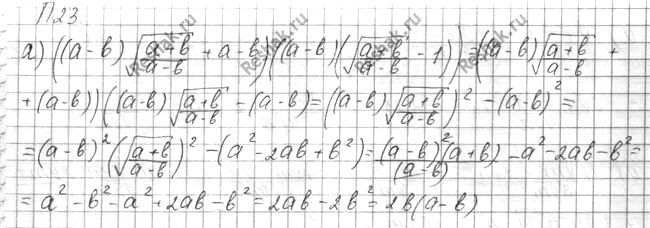 П23
а) ((a-b) √((a+b)/(a-b)) + a-b) ((a-b) (√((a+b)/(a-b)) - 1)) = ((a-b) √((a+b)/(a-b)) +
+ (a-b)) ((a-b) √((a+b)/(a-b)) - (a-b) = ((a-b) √((a+b)/(a-b)))² - (a-b)² =
= (a-b)² (√((a+b)/(a-b)))² - (a² - 2ab + b²) = (a-b)²(a+b)/(a-b) - a² - 2ab - b² =
= a² - b² - a² + 2ab - b² = 2ab - 2b² = 2b(a-b)
Reshak.ru
Reshak.ru
Reshak.ru
Reshak.ru